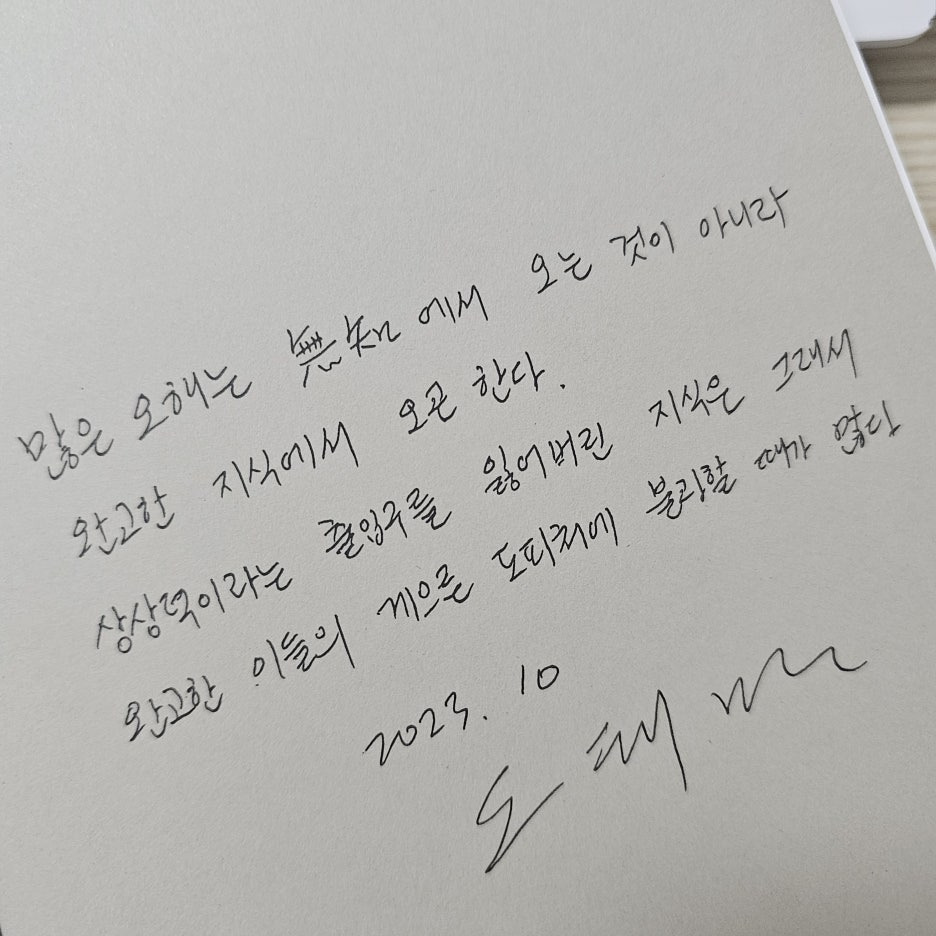 많은 오해는 無知에서 오는 것이 아니라
완고한 지식에서 오곤 한다.
상상력이라는 출입구를 잃어버린 지식은 그래서
완고한 이들의 게으른 도피처에 불과할 때가 많다
2023. 10